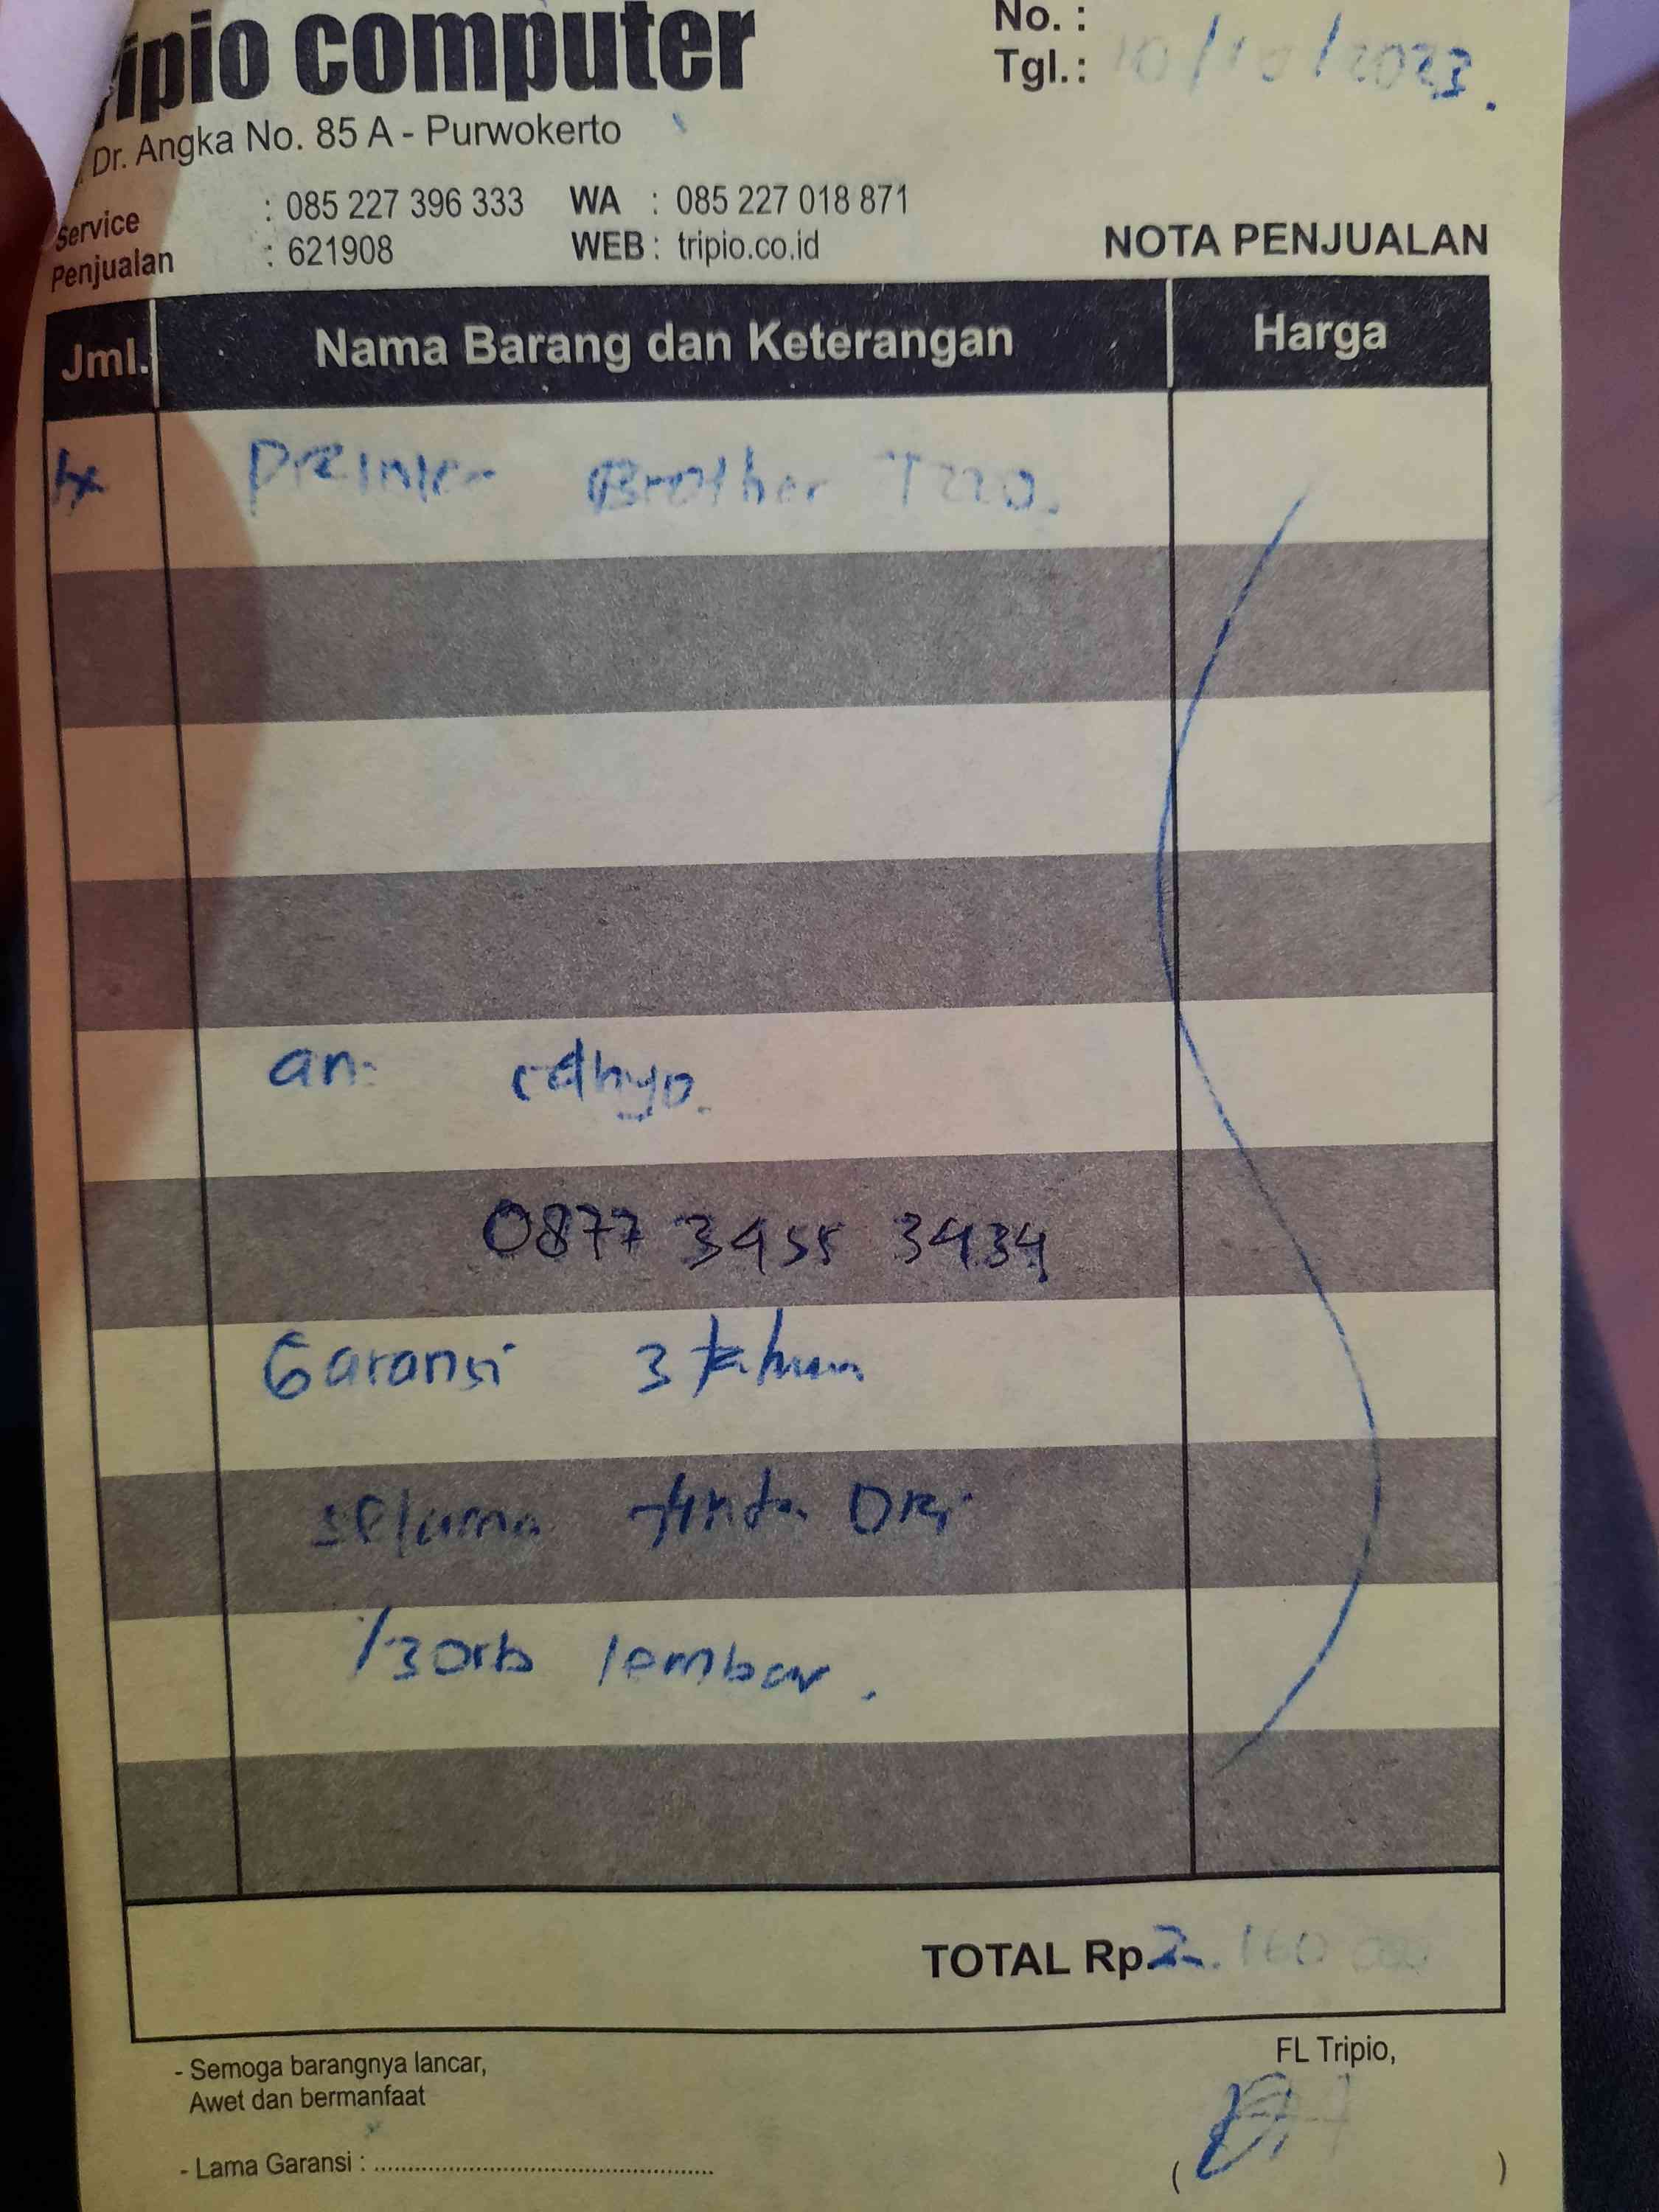 Tripio computer
No. :
Tgl.: 10/10/2023.
Dr. Angka No. 85 A - Purwokerto
Service : 085 227 396 333 WA : 085 227 018 871
Penjualan : 621908 WEB : tripio.co.id
NOTA PENJUALAN
Jml. Nama Barang dan Keterangan Harga
1x Printer Brother T220.
an: cahyo.
0877 3455 3434
Garansi 3 tahun
selama tinta Ori
/30rb lembar.
TOTAL Rp. 2.160 000
- Semoga barangnya lancar,
Awet dan bermanfaat
FL Tripio,
- Lama Garansi : ....................................................
( )